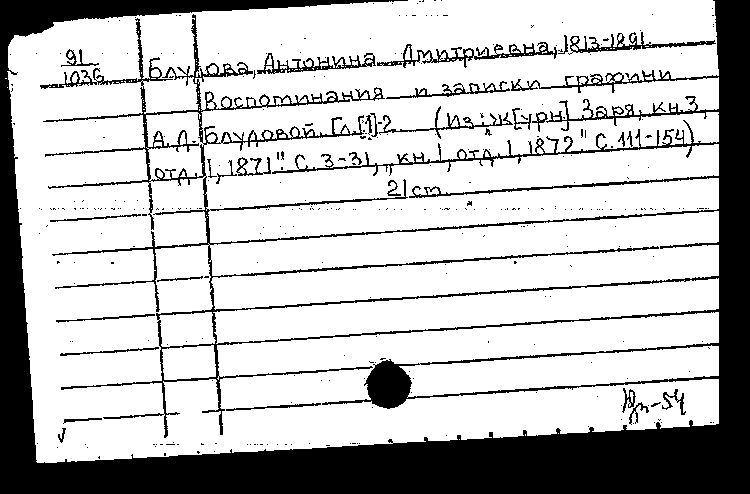 91
1036
Блудова, Антонина Дмитриевна, 1813-1891.
Воспоминания и записки графини
А.Д. Блудовой. Гл.[1]-2 (Из: ж[урн] Заря, кн.3,
отд. I, 1871" С. 3-31, „кн. I, отд. I, 1872" С. 111-154).
21 cm
-54